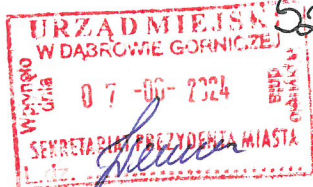 URZĄD MIEJSKI
W DĄBROWIE GÓRNICZEJ
Wpłynęło
dnia
07 -06- 2024
SEKRETARIAT PREZYDENTA MIASTA